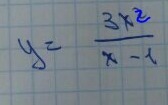 y = 3x² / x - 1